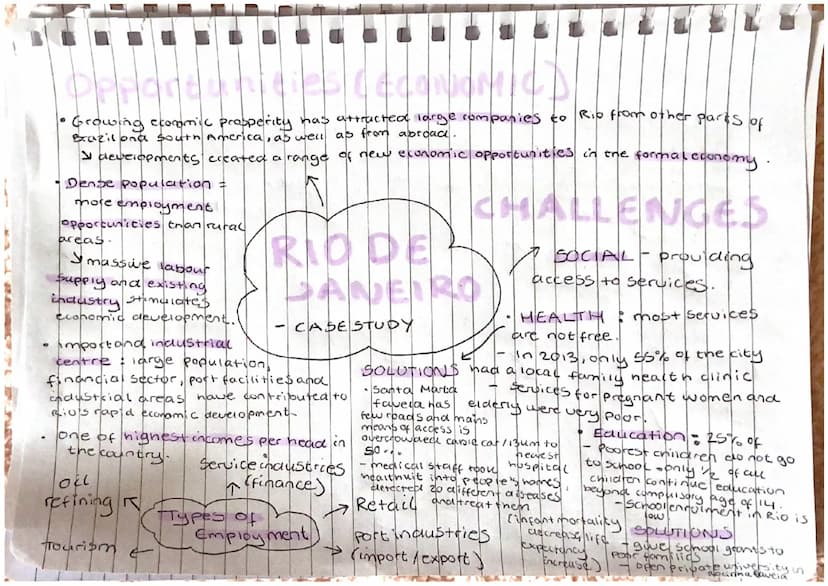 Opportunities (ECONOMIC)
• Growing economic prosperity has attracted large companies to Rio from other parts of
Brazil and South America, as well as from abroad.
↘ developments created a range of new economic opportunities in the formal economy.
• Dense population =
more employment
opportunities than rural
areas.
↘ massive labour
supply and existing
industry stimulates
economic development.
• Important industrial
centre : large population,
financial sector, port facilities and
industrial areas have contributed to
Rio's rapid economic development.
• one of highest incomes per head in
the country.
RIO DE
JANEIRO
- CASE STUDY
CHALLENGES
SOCIAL - providing
access to services.
• HEALTH : most services
are not free.
- In 2013, only 55% of the city
had a local family health clinic
- services for pregnant women and
elderly were very poor.
SOLUTIONS
• Santa Marta
favela has
few roads and mains
means of access is
overcrowded cable car / 13km to
newest
hospital
so...
- medical staff took
health kit into people's homes,
detected 20 different diseases
and treat them
(infant mortality
decrease, life
expectancy
increase)
• Education : 25% of
- poorest children do not go
to school - only 1/2 of all
children continue education
beyond compulsory age of 14.
- School enrolment in Rio is
low
SOLUTIONS
- give school grants to
poor families
- open private university in
favela
Types of
Employment
service industries
(finances)
oil
refining
Tourism
Retail
port industries
(import / export)